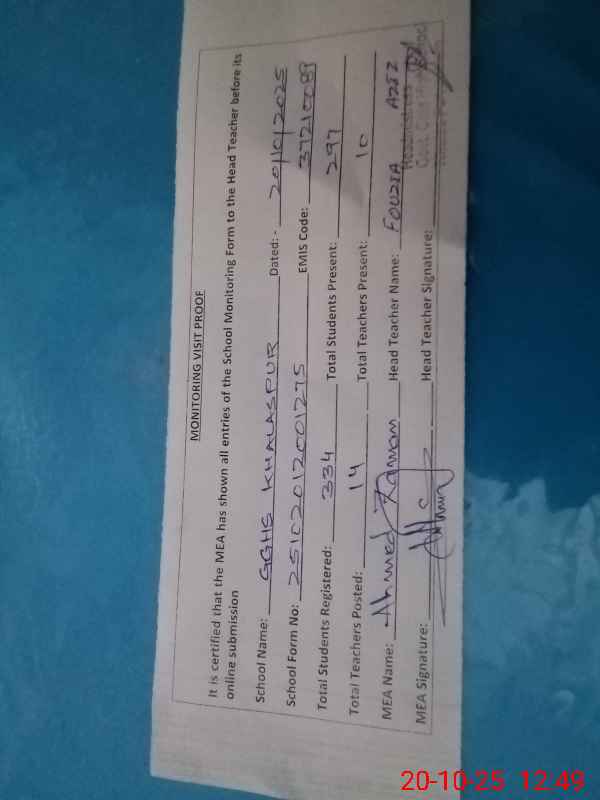 MONITORING VISIT PROOF
It is certified that the MEA has shown all entries of the School Monitoring Form to the Head Teacher before its
online submission
School Name: GGHS KHALASPUR Dated: - 20/10/2025
School Form No: 25102012001275 EMIS Code: 37210089
Total Students Registered: 334 Total Students Present: 297
Total Teachers Posted: 14 Total Teachers Present: 10
MEA Name: Ahmed Zaman Head Teacher Name: FOUZIA AZIZ
MEA Signature: Head Teacher Signature:
Headmistress
20-10-25 12:49